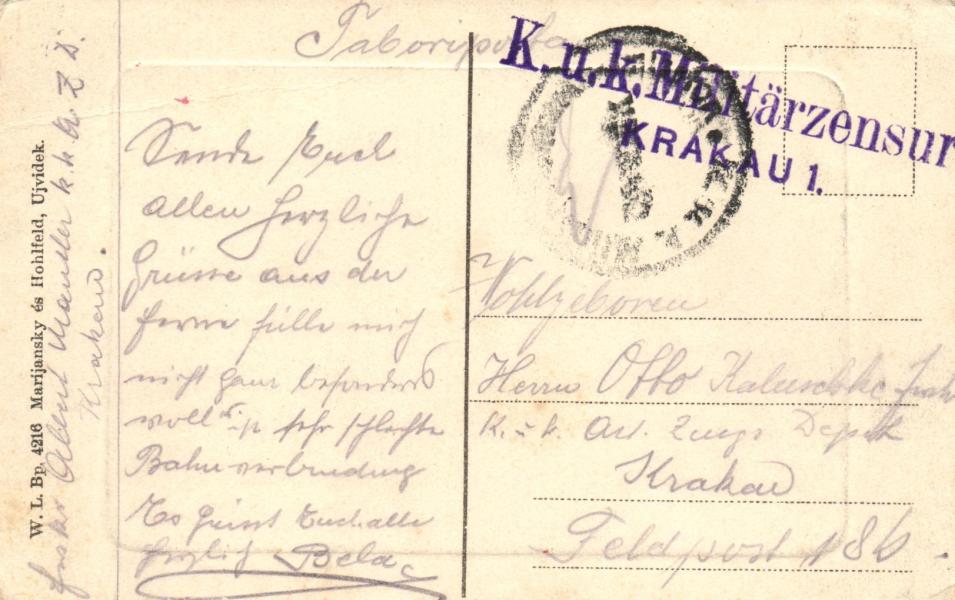 Taboriposta
K.u.k. Militärzensur
KRAKAU 1.
W. L. Bp. 4216 Marijansky és Hohlfeld, Ujvidek.
Albert k. k.
Krakau.
Sende Euch
allen herzliche
Grüsse aus der
ferne fülle mich
nicht ganz besonders
woll ist sehr schlechte
Bahnverbindung
Es grüsst Euch alle
herzlich Bela
Wohlgeboren
Herrn Otto
K. u. k. Art. Zeugs Depot
Krakau
Feldpost 186.